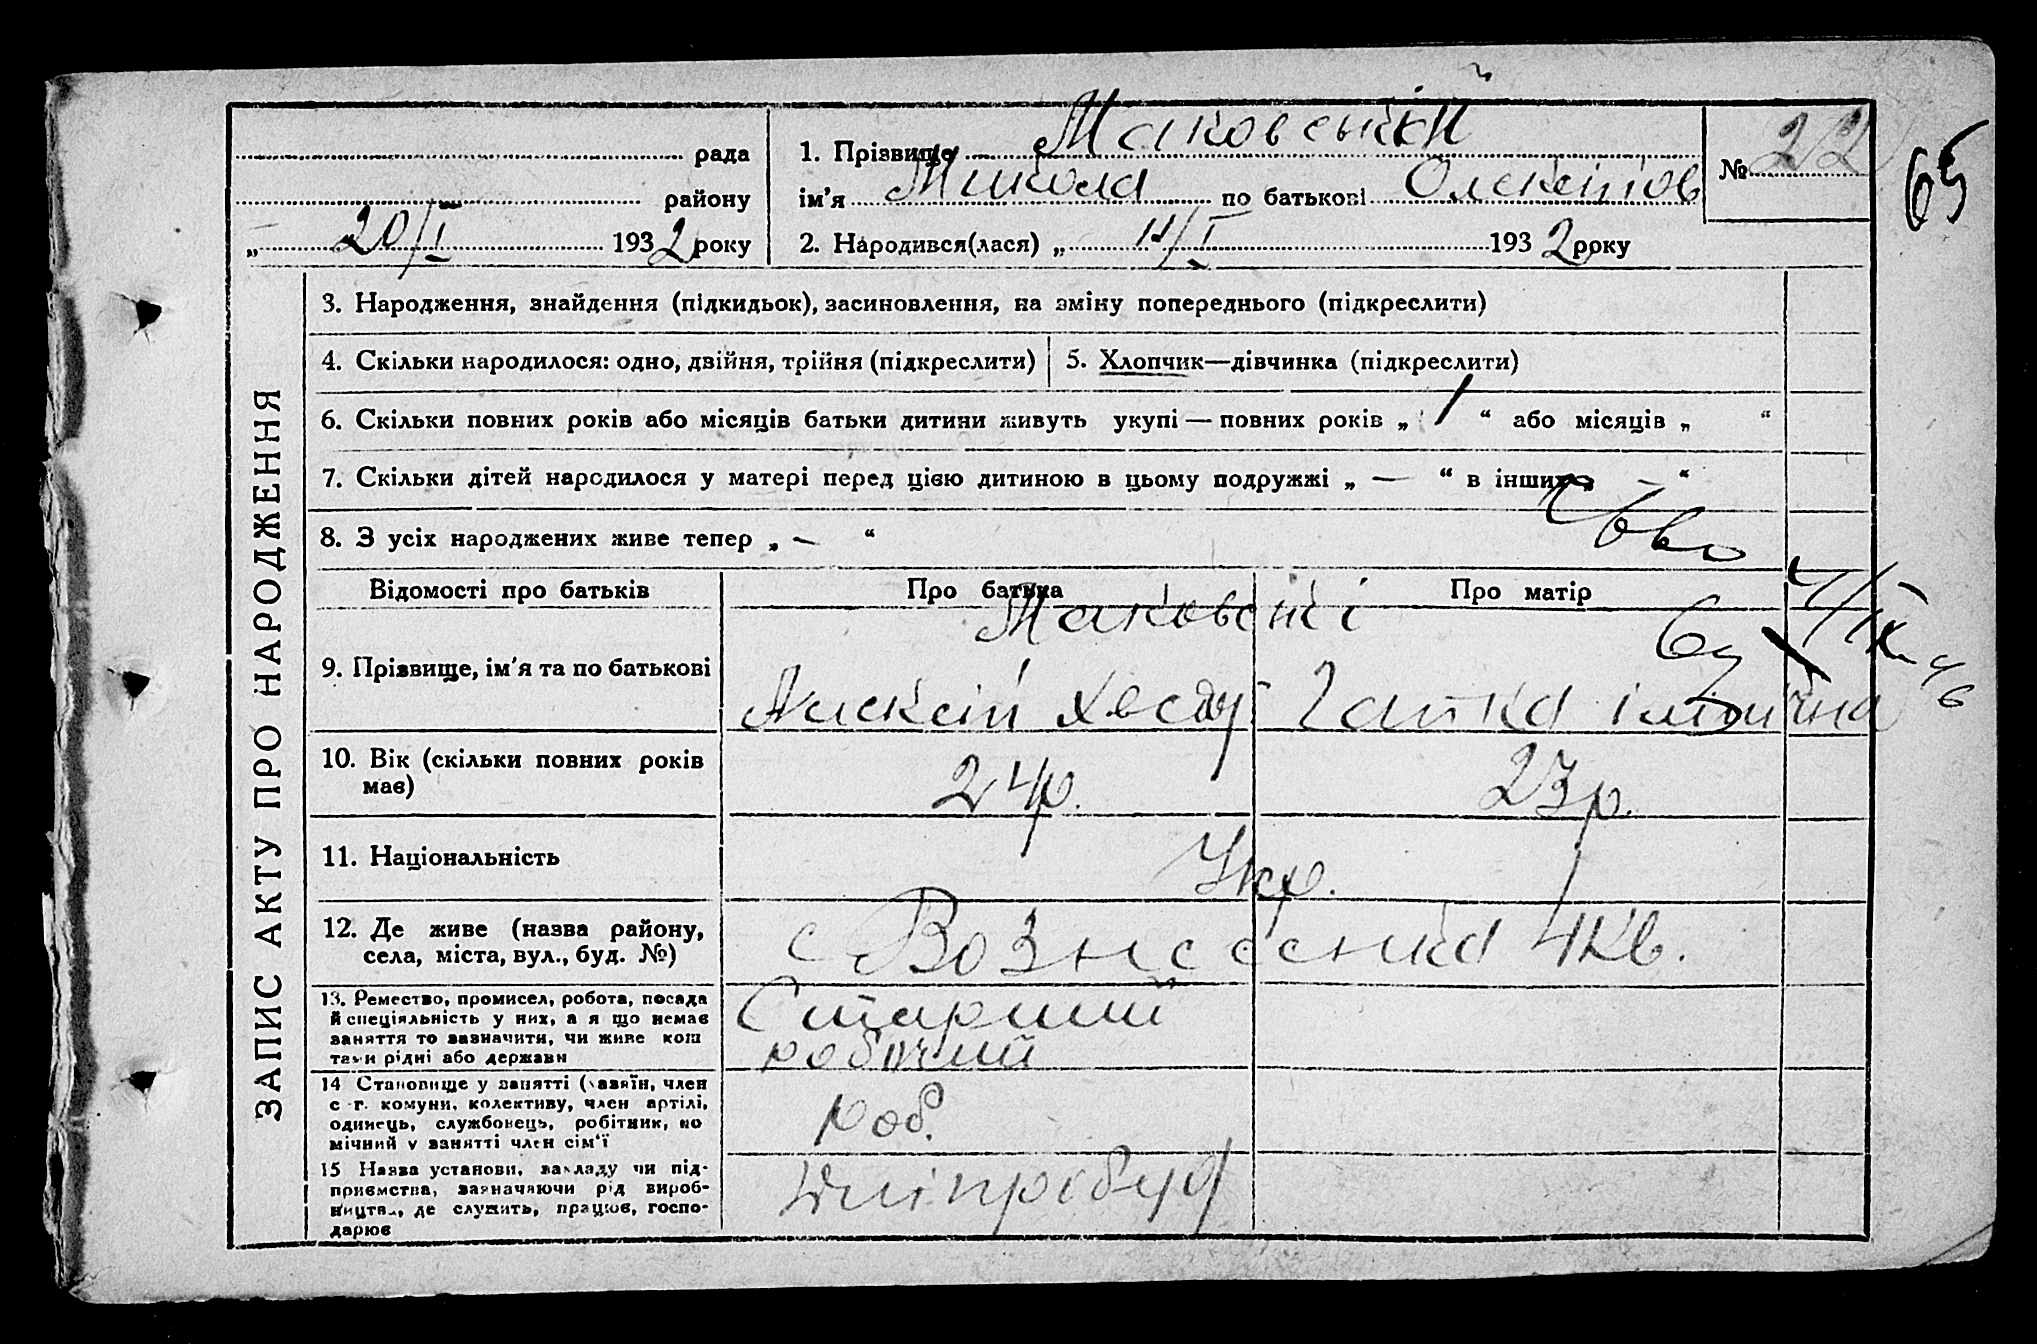 рада
району
„ 20/I 1932 року
1. Прізвище Маковський
ім'я Микола по батькові Олексійов
2. Народився(лася) „ 11/I 1932 року
№ 22
65
ЗАПИС АКТУ ПРО НАРОДЖЕННЯ
3. Народження, знайдення (підкидьок), засиновлення, на зміну попереднього (підкреслити)
4. Скільки народилося: одно, двійня, трійня (підкреслити)
5. Хлопчик—дівчинка (підкреслити)
6. Скільки повних років або місяців батьки дитини живуть укупі — повних років „ 1 “ або місяців „ “
7. Скільки дітей народилося у матері перед цією дитиною в цьому подружжі „ — “ в інших „ — “
8. З усіх народжених живе тепер „ — “
Відомості про батьків
Про батька
Про матір
9. Прізвище, ім'я та по батькові
Маковські
10. Вік (скільки повних років має)
24р.
23р.
11. Національність
Укр.
12. Де живе (назва району,
села, міста, вул., буд. №)
с Вознесенка 4кв.
13. Ремество, промисел, робота, посада
й спеціяльність у них, а я що немає
заняття то зазначити, чи живе кош
тами рідні або держави
Старший
робочий
14 Становище у занятті (хазяїн, член
с.-г. комуни, колективу, член артілі,
одинець, службовець, робітник, по
мічний у занятті член сім'ї
роб.
15 Назва установи, закладу чи під-
приємства, зазначаючи рід вироб-
ництва, де служить, працює, госпо-
дарює
Дніпробуд